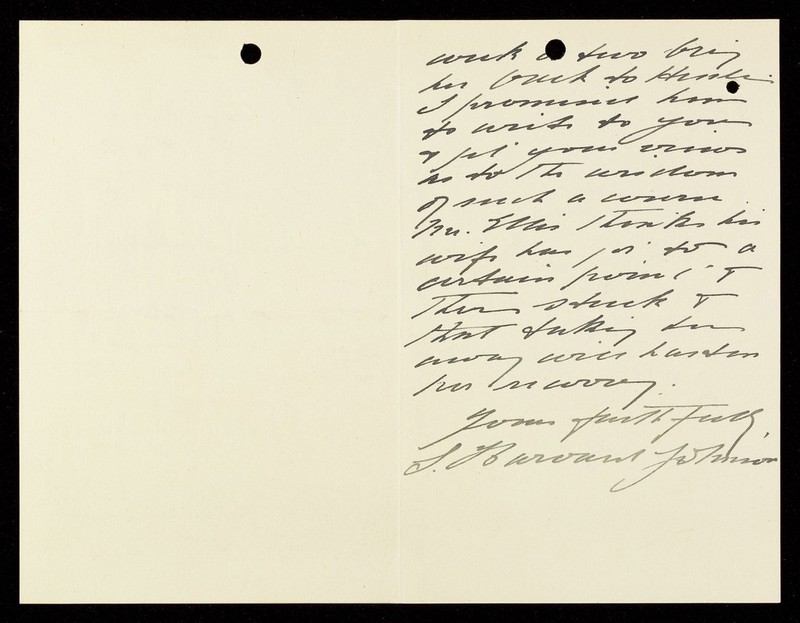 week or two bring
her back to
I promised him
to write to you
& get your views
as to the wisdom
of such a course.
Mr. Ellis thinks his
wife has got to a
certain point &
then stuck &
that taking her
away will hasten
her recovery.
Yours faithfully,
S. Barvard Johnson